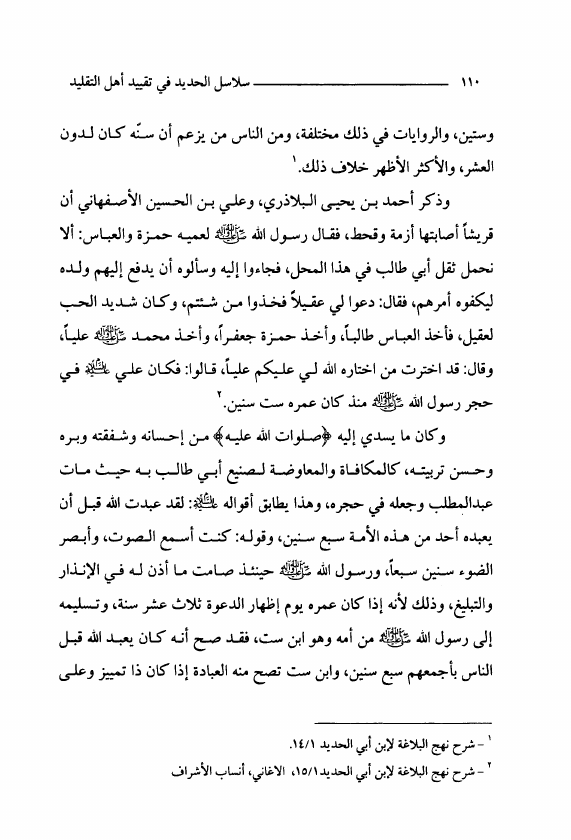 ١١٠ سلاسل الحديد في تقييد أهل التقليد
وستين، والروايات في ذلك مختلفة، ومن الناس من يزعم أن سنّه كان لدون
العشر، والأكثر الأظهر خلاف ذلك.١
وذكر أحمد بن يحيى البلاذري، وعلي بن الحسين الأصفهاني أن
قريشاً أصابتها أزمة وقحط، فقال رسول الله ﷺ لعميه حمزة والعباس: ألا
نحمل ثقل أبي طالب في هذا المحل، فجاءوا إليه وسألوه أن يدفع إليهم ولده
ليكفوه أمرهم، فقال: دعوا لي عقيلاً فخذوا من شئتم، وكان شديد الحب
لعقيل، فأخذ العباس طالباً، وأخذ حمزة جعفراً، وأخذ محمد ﷺ علياً،
وقال: قد اخترت من اختاره الله لي عليكم علياً، قالوا: فكان علي عليه السلام في
حجر رسول الله ﷺ منذ كان عمره ست سنين.٢
وكان ما يسدي إليه ﴿صلوات الله عليه﴾ من إحسانه وشفقته وبره
وحسن تربيته، كالمكافاة والمعاوضة لصنيع أبي طالب به حيث مات
عبدالمطلب وجعله في حجره، وهذا يطابق أقواله عليه السلام: لقد عبدت الله قبل أن
يعبده أحد من هذه الأمة سبع سنين، وقوله: كنت أسمع الصوت، وأبصر
الضوء سنين سبعاً، ورسول الله ﷺ حينئذ صامت ما أذن له في الإنذار
والتبليغ، وذلك لأنه إذا كان عمره يوم إظهار الدعوة ثلاث عشر سنة، وتسليمه
إلى رسول الله ﷺ من أمه وهو ابن ست، فقد صح أنه كان يعبد الله قبل
الناس بأجمعهم سبع سنين، وابن ست تصح منه العبادة إذا كان ذا تمييز وعلى
١ - شرح نهج البلاغة لإبن أبي الحديد ١٤/١.
٢ - شرح نهج البلاغة لإبن أبي الحديد١٥/١، الاغاني، أنساب الأشراف